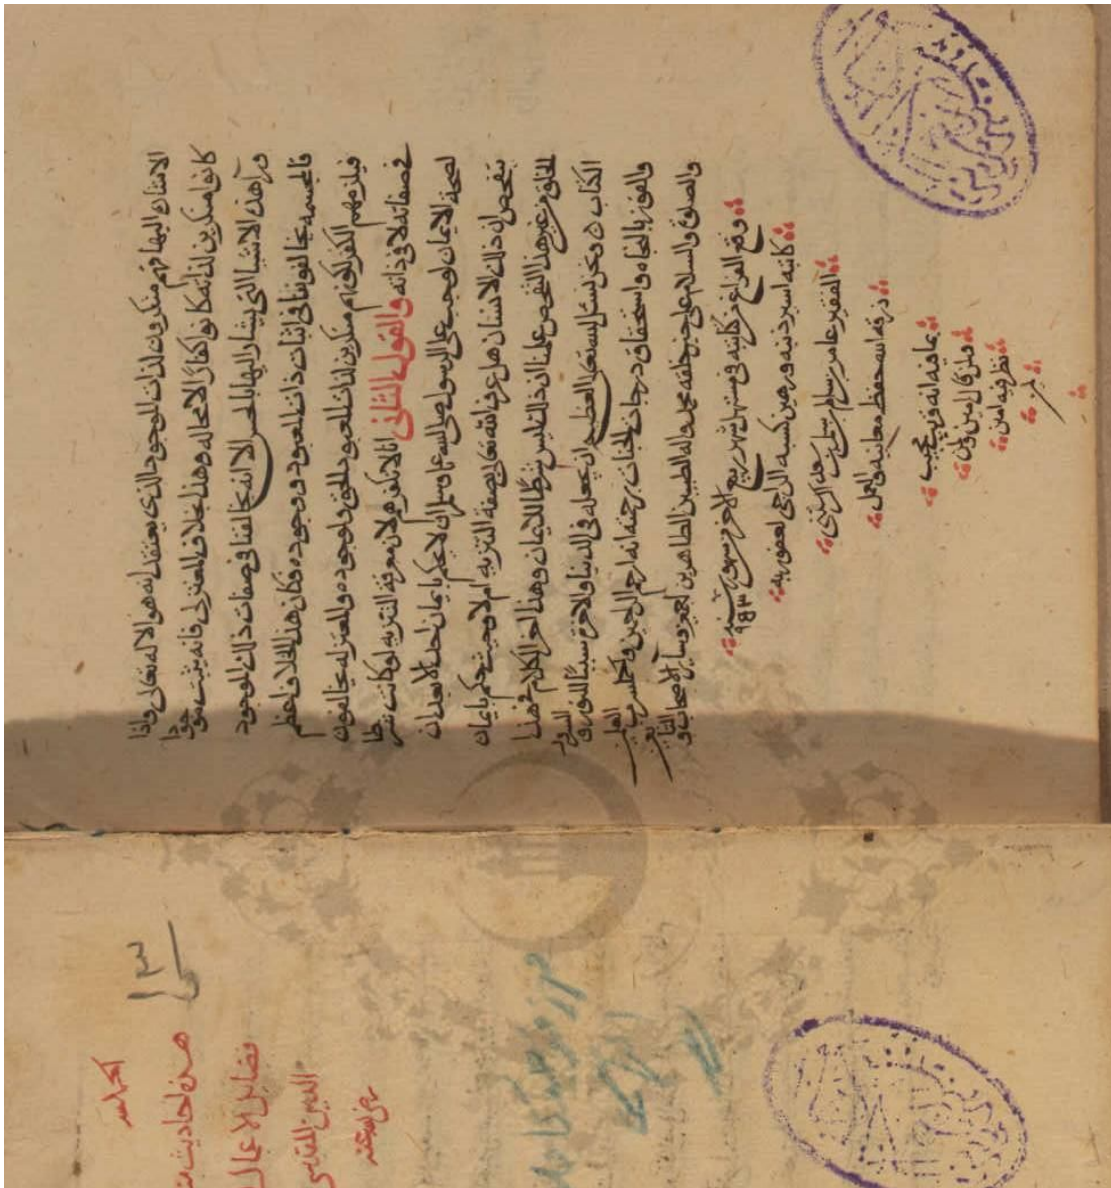 الاشارة اليها فهم منكرون لذات الموجود الذي يعتقد انه هو الاله تعالى واذا
كانوا منكرين لذاته كانوا كفارا لا محاله وهذا بخلاف المعتزلي فانه يثبت موجودا
ورآ هذه الاشيا التي يشار اليها بالحس الا انه يخالفنا في صفات ذلك الموجود
فالمجسمه يخالفوننا في اثبات ذات المعبود ووجوده فكان هذا الخلاف اعظم
فيلزمهم الكفر لكونهم منكرين لذات المعبود الحق ولوجوده والمعتزله يخالفون
في صفاته لا في ذاته والقول الثاني انا لا نكفرهم لان معرفة التنزيه لو كانت شرطا
لصحة الايمان لوجب على الرسول صلى الله عليه وسلم ان لا يحكم بايمان احد الا بعد ان
يتفحص ان ذلك الانسان هل عرف الله تعالى بصفة التنزيه ام لا وحيث حكم بايمان
الخلق من غير هذا التفحص علمنا ان ذلك ليس شرطا للايمان وهذا اخر الكلام في هذا
الكتاب ونحن نسئل الله تعالى العظيم ان يجعله في الدنيا والاخرة سببا للنور والسرور
والفوز بالنجاة واستحقاق درجات الجنات برحمته انه ارحم الراحمين والحمد لله رب العالمين
والصلوة والسلام على خير خلقه محمد واله الطيبين الطاهرين اجمعين وساير الاصحاب والتابعين
وقع الفراغ من كتابته في مستهل شهر ربيع الاخر من شهور سنه ٩٨٣
كاتبه اسير ذنبه ورهين كسبه الراجي لعفو ربه
الفقير عامر بن سالم بن
رزقه الله حفظ معانيه والعمل
بما فيه انه قريب مجيب
ولمن قال امين ولمن
نظر فيه امين
١٣
هذه احاديث
فضايل الاعمال
الدين المقدسي
رضي الله عنه